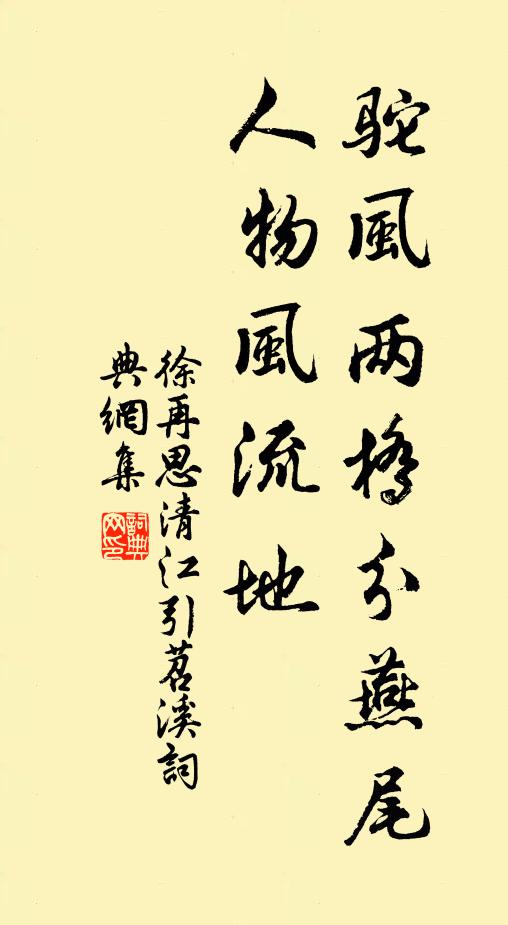 駝風兩橋分燕尾
人物風流地
徐再思清江引苕溪詞
典網集
詞典
网印